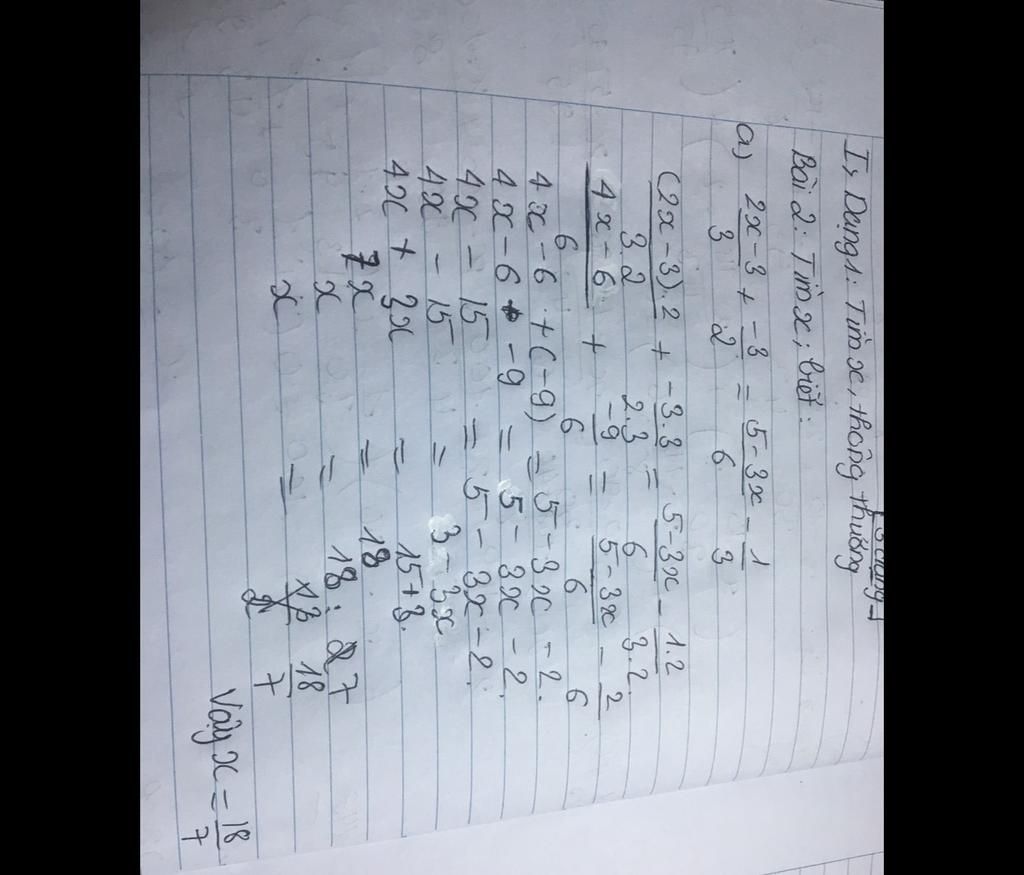 I, Dạng 1: Tìm x, thông thường
Bài 2: Tìm x, biết:
a) (2x-3)/3 + (-3)/2 = (5-3x)/6 - 1/3
((2x-3).2)/(3.2) + (-3.3)/(2.3) = (5-3x)/6 - (1.2)/(3.2)
(4x-6)/6 + (-9)/6 = (5-3x)/6 - 2/6
4x-6 + (-9) = 5-3x-2.
4x-6 -9 = 5-3x-2.
4x - 15 = 5-3x-2.
4x - 15 = 3-3x
4x + 3x = 15+3.
7x = 18
x = 18: 7
x = 18/7
Vậy x = 18/7